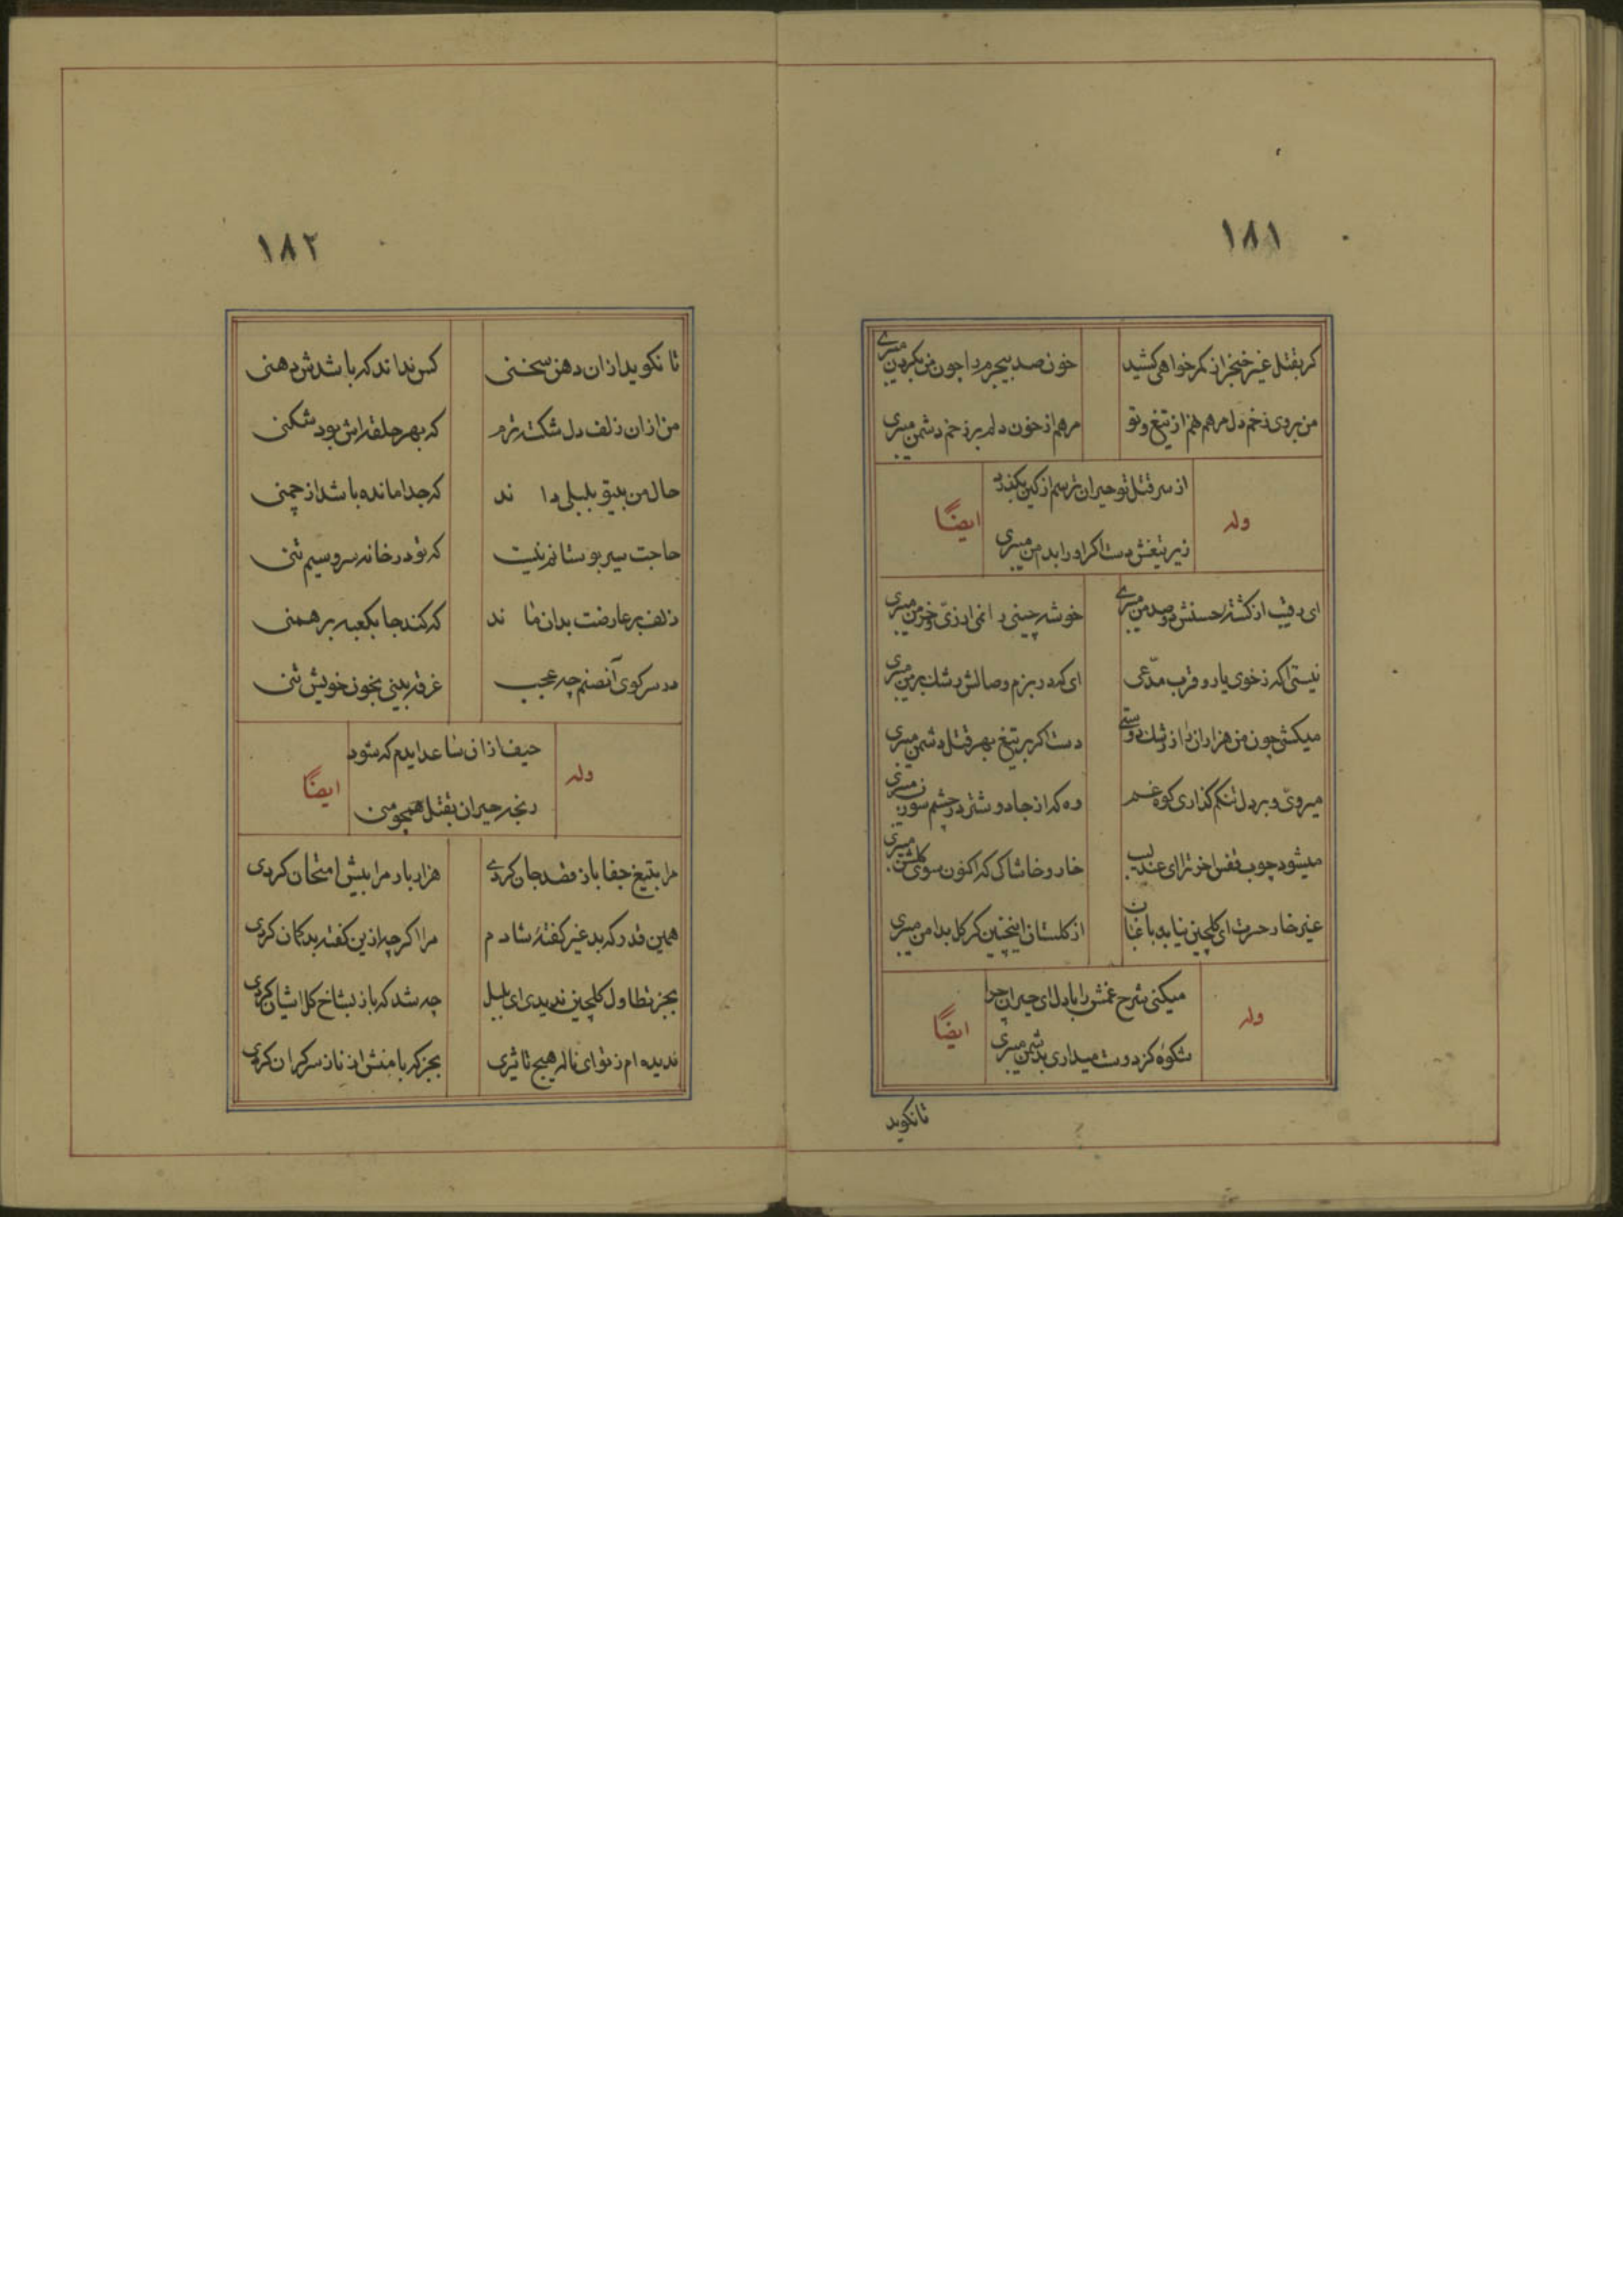 ۱۸۱
کر بقتل غیر خنجر از کمر خواهی کشید خون صد بیجرم را چون من بکردن میبری
من بروی زخم دل مرهم نهم از تیغ و تو مرهم از خون دلم بر زخم دشمن میبری
وله از سر قتل تو حیران ترسم از کین بگذرد ایضًا
زیر تیغش دست اکر او را بدامن میبری
ای رقیب از کشته حسنش دو صد من میبری خوشه چینی را نمی ارزی و خرمن میبری
نیستی اکه ز خوی یار و قرب مدّعی ای که در بزم وصالش رشک بر من میبری
میکشی چون من هزاران را از رشک دوستی دست اکر بر تیغ بهر قتل دشمن میبری
میرویّ و بر دل تنکم کذاری کوه غم وه که از جادو شتر در چشم سوزن میبری
میشود چوب قفس اخر ترا ای عندلیب خار و خاشاکی که اکنون سوی کلشن میبری
غیر خار حسرت ای کلچین نیابد باغبان از کلستان اینچنین کر کل بدامن میبری
وله میکنی شرح غمش را با دل ای حیران چرا ایضًا
شکوه کز دوست میداری بدشمن میبری
تا نکوید
۱۸۲
تا نکوید از ان دهن سخنی کس نداند که باشدش دهنی
من از ان زلف دل شکسته ترم که بهر حلقه اش بود شکنی
حال من بیتو بلبلی داند که جدا مانده باشد از چمنی
حاجت سیر بوستانم نیست که تو در خانه سرو سیم تنی
زلف بر عارضت بدان ماند که کند جا بکعبه برهمنی
در سر کوی آنصنم چه عجب غرقه بینی بخون خویش تنی
وله حیف از ان ساعد ایدم که شود ایضًا
رنجه حیران بقتل همچو منی
مرا بتیغ جفا باز قصد جان کردی هزار بار مرا بیش امتحان کردی
همین قدر که بد غیر کفته شادم مرا اکرچه ازین کفته بدکمان کردی
بجز تطاول کلچین ندیدی ای بلبل چه شد که باز بشاخ کل اشیان کردی
ندیده ام ز تو ای ناله هیچ تاثیری بجز که با منش از ناز سرکران کردی